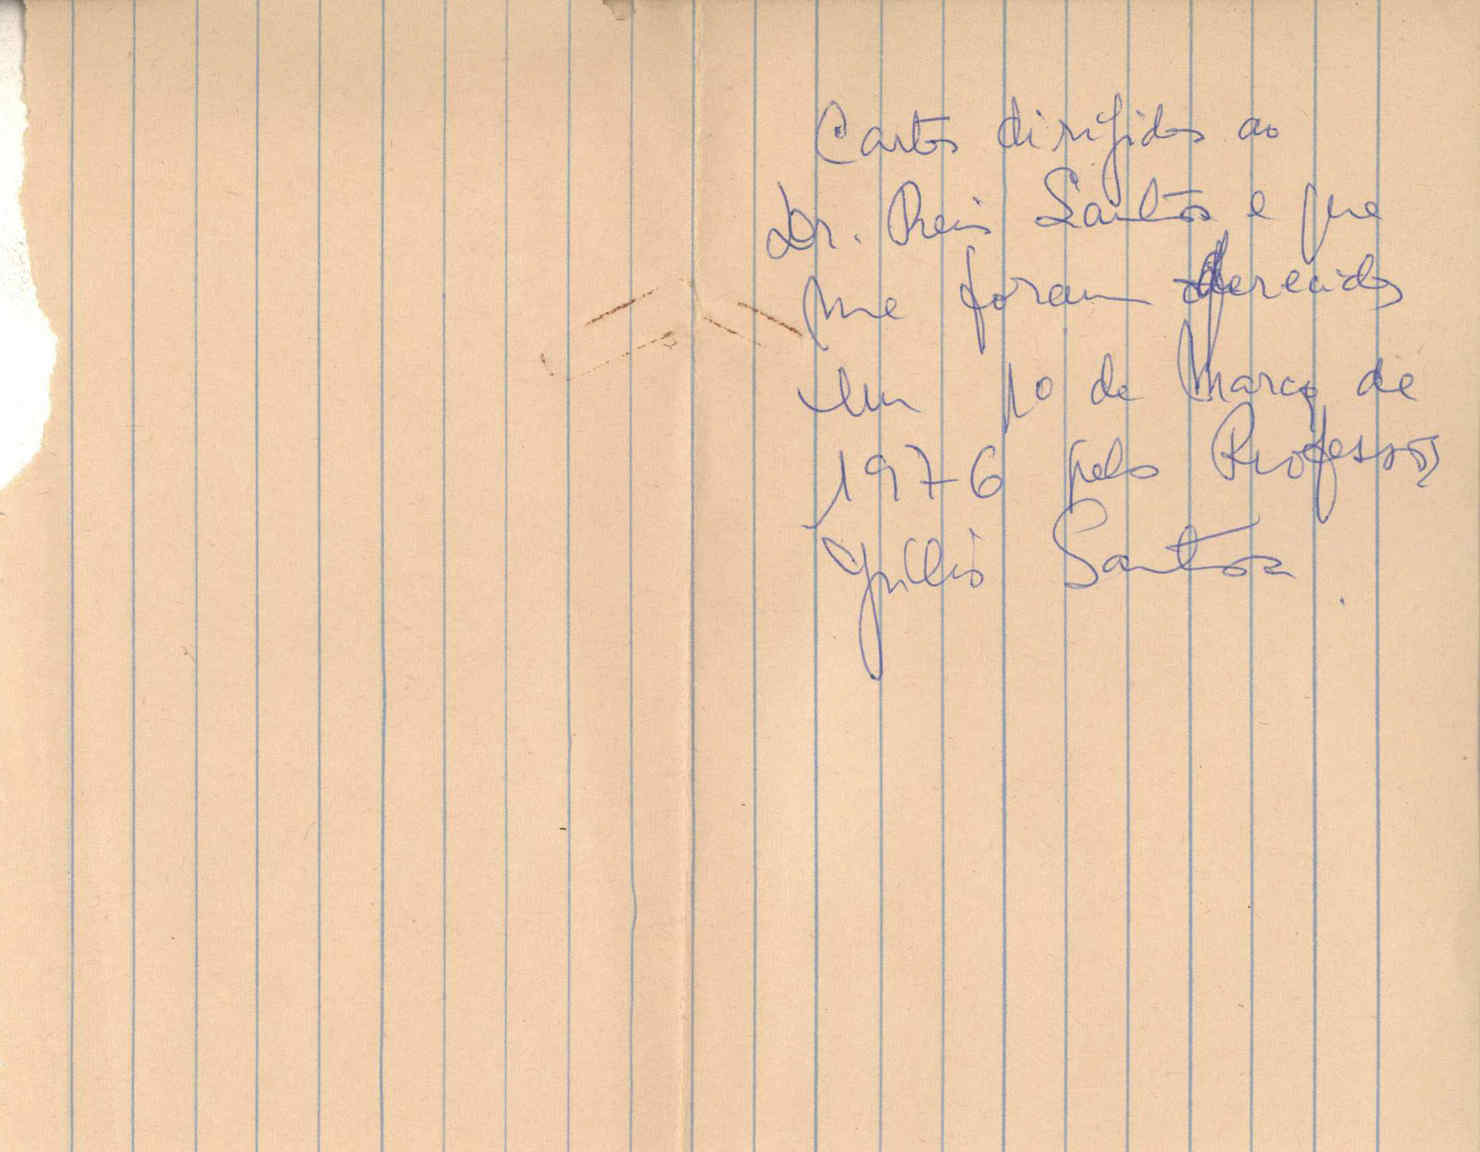 Cartas dirigidas ao
Dr. Reis Santos e que
me foram oferecidas
em 10 de Março de
1976 pelo Professor
Júlio Santos.